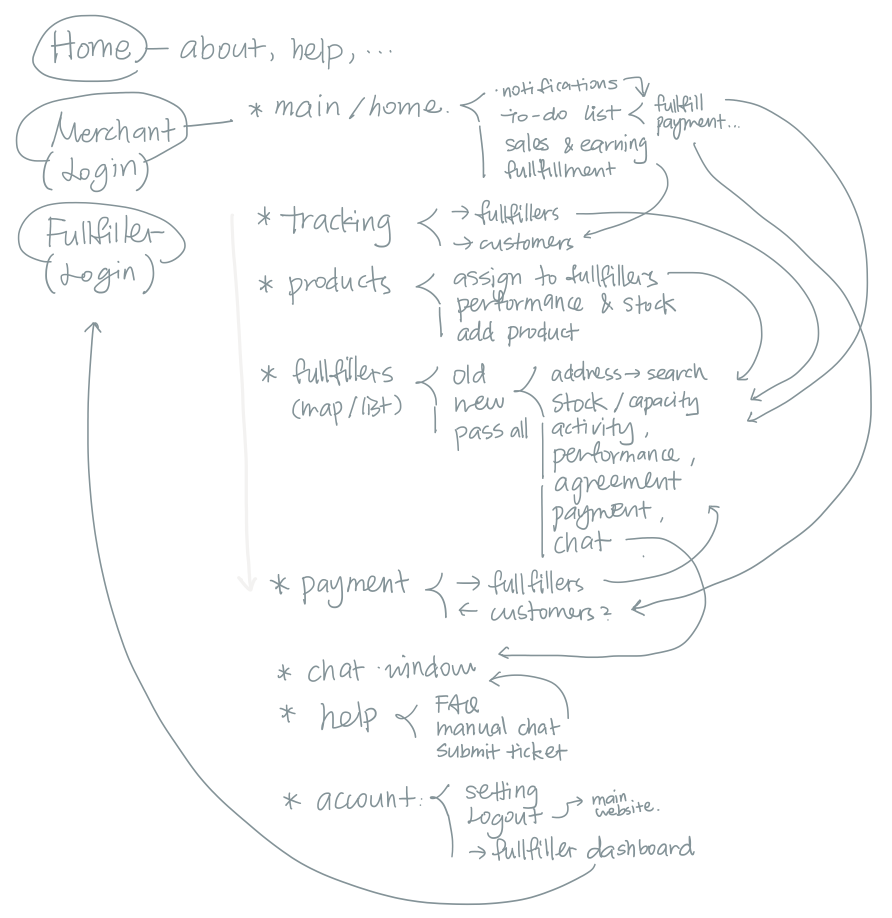 Home — about, help, ...
Merchant
(Login)
* main/home.
· notifications
to-do list < fulfill
payment...
sales & earning
fullfillment
Fullfiller
(Login)
* tracking
→ fullfillers
→ customers
* products
assign to fullfillers
performance & stock
add product
* fullfillers
(map/list)
old
new
pass all
address → search
stock / capacity
activity,
performance,
agreement
payment,
chat
* payment
→ fullfillers
← customers?
* chat window
* help
FAQ
manual chat
submit ticket
* account
setting
Logout → main
website.
→ fullfiller dashboard